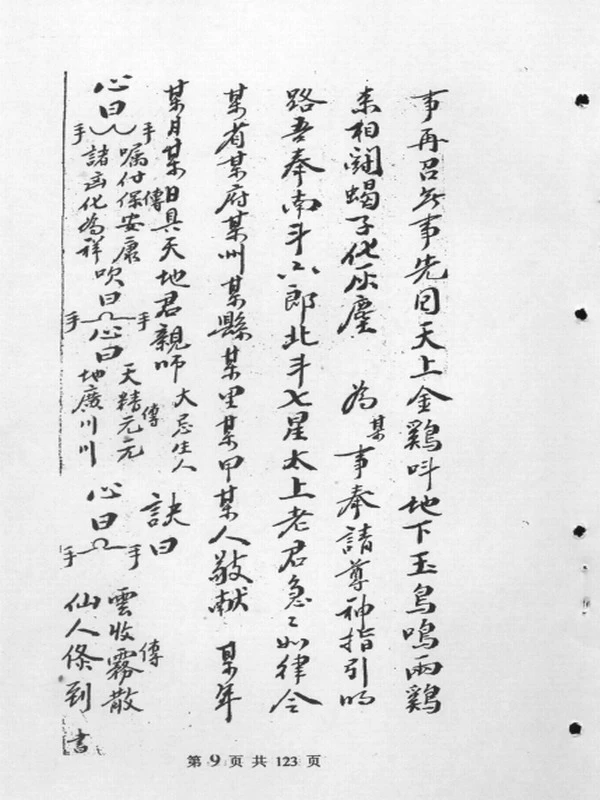 事再召事先天上金鷄叫地下玉鳥鳴兩鷄
来相闘蝎子化灰塵 為某事奉請尊神指引明
路吾奉南斗六郎北斗七星太上老君急〻如律令
某省某府某州某縣某里某甲某人敬献 某年
某月某日具天地君親師 大忌生人 訣曰
心曰
手 手
傳
囑付保安康
諸凶化為祥 吹曰
手 手
心曰
傳
天精元元
地廣川川
心曰
手 手
傳
雲收霧散
仙人條到
書
第 9 页 共 123 页